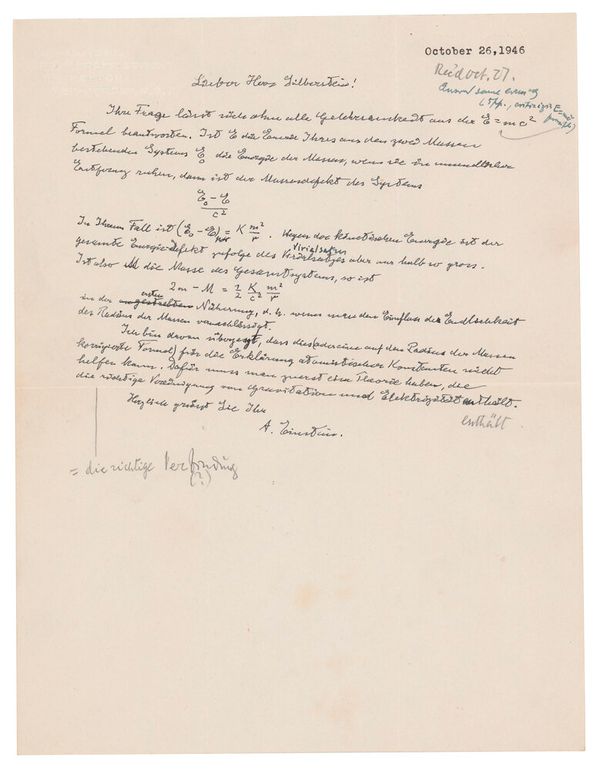 October 26, 1946
Rec'd Oct. 27.
Lieber Herr Silberstein!
Ihre Frage lässt sich ohne alle Gelehrsamkeit aus der E = mc²
Formel beantworten. Ist E die Energie Ihres aus den zwei Massen
bestehenden Systems E₀ die Energie der Massen, wenn sie in unendlicher
Entfernung ruhen, dann ist der Massendefekt des Systems
E₀ − E
c²
In Ihrem Fall ist (E₀ − E) = K m²/r. Wegen der kinetischen Energie ist der
Virialsatzes
gesamte Energie-Defekt zufolge des Virialsatzes aber nur halb so gross.
Ist also M die Masse des Gesamtsystems, so ist
2m − M = 1/2 K/c² m²/r
ersten
in der Näherung, d. h. wenn man den Einfluss der Endlichkeit
des Radius der Massen vernachlässigt.
Ich bin davon überzeugt, dass dies (oder eine auf den Radius der Massen
korrigierte Formel) für die Erklärung atomistischer Konstanten nicht
helfen kann. Dafür muss man zuerst eine Theorie haben, die
die richtige Vereinigung von Gravitation und Elektrizität enthält.
enthält
Herzlich grüsst Sie Ihr
A. Einstein.
= die richtige Verbindung
(?)